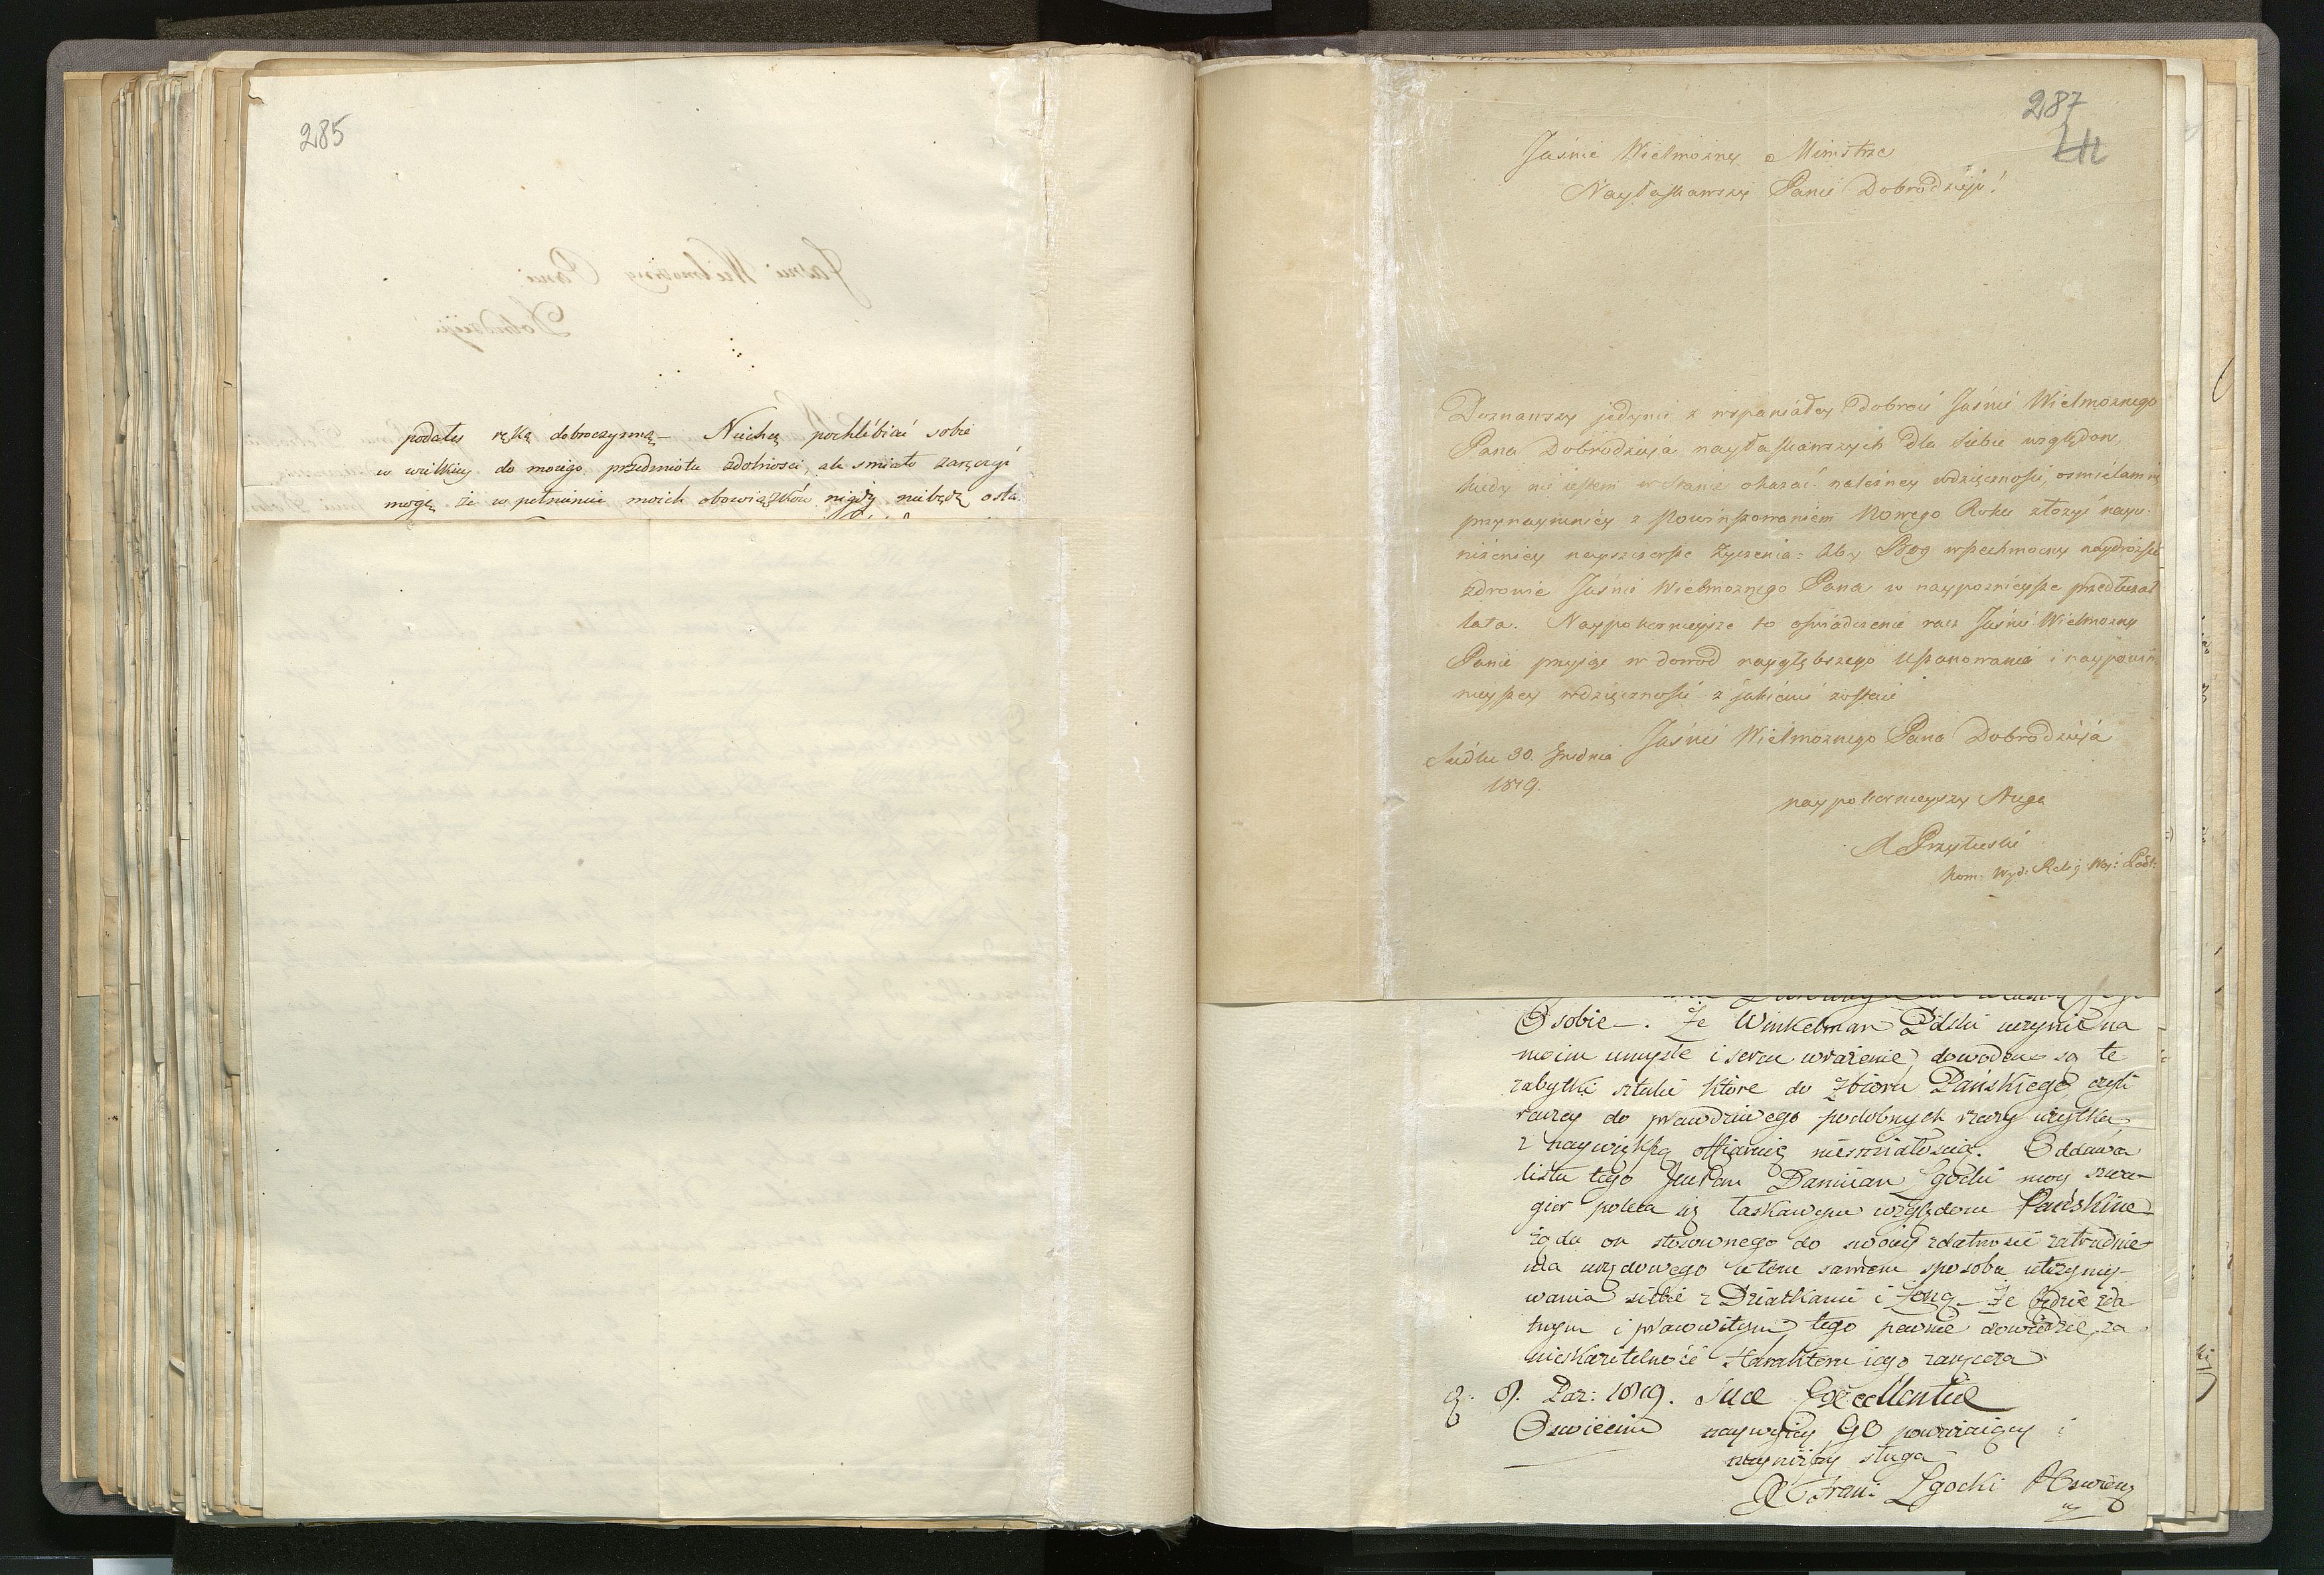 285
podały rękę dobroczynną — Niechcę pochlébiać sobie
w wielkiey do moiego przedmiotu zdolnosci, ale smiało zaręczyć
mogę, że w pełnieniu moich obowiązków nigdy niebędę osła-
287
Jaśnie Wielmożny Ministrze
Nayłaskawszy Panie Dobrodzieju!
Doznawszy jedynie z wspaniałey Dobroci Jaśnie Wielmożnego
Pana Dobrodzieja nayłaskawszych dla siebie względow,
kiedy nie iestem w stanie okazać należney wdzięcznosci, osmielam się
przynaymniey z Powinszowaniem Nowego Roku złożyć nayu-
niżeniey nayszczersze Życzenia: Aby Bog wszechmocny naydroższe
zdrowie Jaśnie Wielmożnego Pana w naypoznieysze przedłużał
lata. Naypokornieysze to oświadczenie racz Jaśnie Wielmożny
Panie przyiąć w dowod naygłębszego uszanowania i naypowin-
nieyszey wdzięczności z jakiemi zostaię
Jaśnie Wielmożnego Pana Dobrodzieja
Siedlce 30. Grudnia
1819.
naypokornieyszy sługa
A Przyłuski
Kom: Wyd: Relig: Woj: Podl:
Osobie —. Że Winkelman Polski uczynił na
moim umysle i sercu wrażenie, dowodem są te
zabytki sztuki które do Zbioru Pańskiego, czyli
raczey do prawdziwego podobnych rzeczy użytku
z naywiększą offiaruię nieśmiałością. Oddawca
listu tego Jmć Pan Damian Lgocki moy szwa-
gier poleca się łaskawym względom Pańskim
żąda on stosownego do swoiey zdatności zatrudnie-
nia a tem samem sposobu utrzymy-
wania siebie z Dziatkami i Żoną — Że będzie zda-
tnym i prawowitym, tego pewnie dowiedzie, za
nieskazitelność Harakteru iego zaręcza
d. 9. Paz: 1819. Suae Excellentiae
Oswiecim naywyżey GO poważaiący i
nayniższy sługa
X Fran: Lgocki